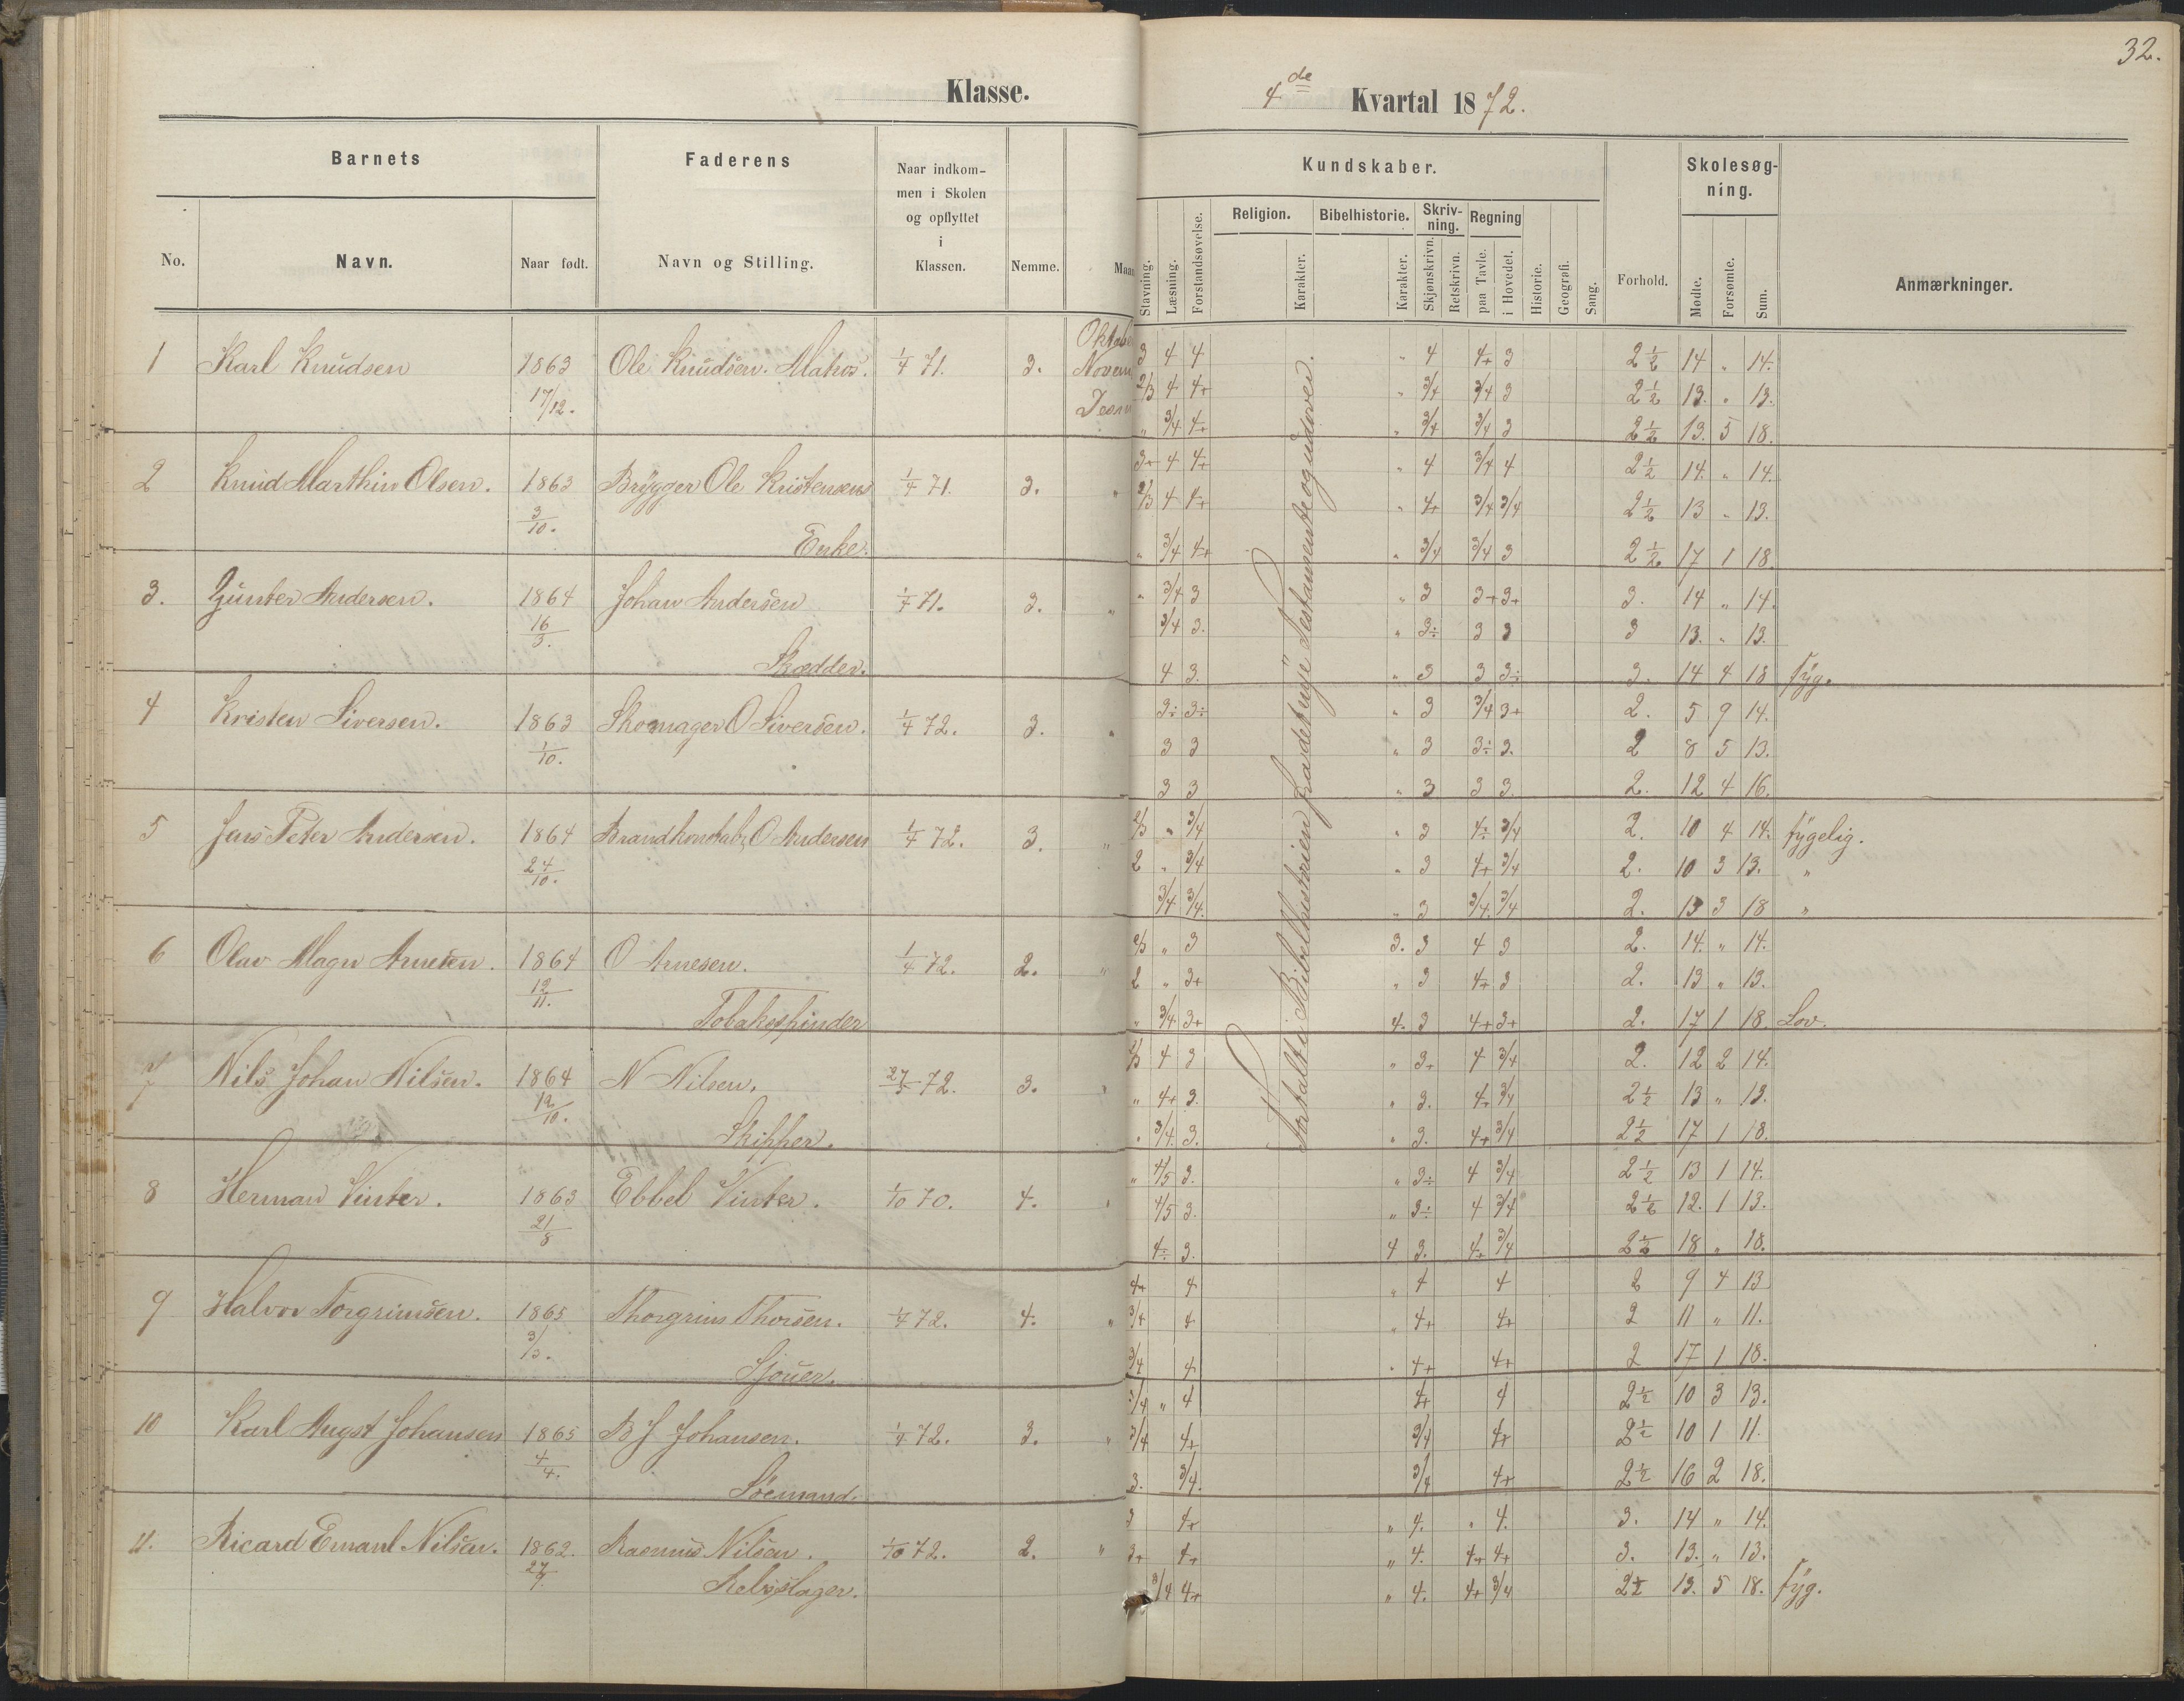 32.
Klasse.
4de Kvartal 1872.
Barnets Faderens Naar indkom-
men i Skolen
og opflyttet
i
Klassen.
No. Navn. Naar født. Navn og Stilling. Nemme.
Kundskaber. Skolesøg-
ning.
Religion. Bibelhistorie. Skriv-
ning. Regning
Stavning. Læsning. Forstandsøvelse. Karakter. Karakter. Skjønskrivn. Retskrivn. paa Tavle. i Hovedet. Historie. Geografi. Sang. Forhold. Mødte. Forsømte. Sum. Anmærkninger.
1 Karl Knudsen 1863 Ole Knudsen. Matros. 1/4 71. 3.
17/12.
3 4 4 " 4 4+ 3 2 1/2 14 " 14.
2/3 4 4+ " 3/4 3/4 3 2 1/2 13. " 13.
" 3/4 4+ " 3/4 3/4 3 2 1/2 13. 5 18.
2 Knud Marthin Olsen. 1863 Brygger Ole Kristensens 1/4 71. 3. "
3/10.
Enke.
3+ 4 4+ " 4 3/4 4 2 1/2 14. " 14.
2/3 4 4+ " 4+ 3/4 3/4 2 1/2 13 " 13.
" 3/4 4+ " 3/4 3/4 3 2 1/2 17 1 18.
3. Gunter Andersen. 1864 Johan Andersen 1/4 71. 3. "
16/3.
Skrædder.
" 3/4 3 " 3 3+ 3+ 3. 14 " 14.
3/4 3. " 3÷ 3 3 3 13. " 13.
4 3. " 3 3 3÷ 3. 14 4 18 syg.
4 Kristen Siversen. 1863 Skomager O Siversen. 1/4 72. 3. "
1/10.
3÷ 3÷ " 3 3/4 3+ 2. 5 9 14.
3 3 " 3 3÷ 3. 2 8 5 13.
3 3 " 3 3 3. 2. 12 4 16.
5 Jens Peter Andersen. 1864 O Andersen 1/4 72. 3. "
24/10.
2/3 " 3/4 " 3 4÷ 3/4 2. 10 4 14. sygelig.
2 " 3/4 " 3 4+ 3/4 2. 10 3 13. "
3/4 3/4. " 3 3/4. 3/4 2. 13 3 18 "
6 Olav Magn Arnesen. 1864 O Arnesen. 1/4 72. 2. "
12/11.
Tobakspinder
2/3 " 3 3. 3 4 3 2. 14. " 14.
2 " 3+ " 3 4+ 3 2. 13 " 13.
" 3/4 3+ 4. 3 4+ 3+ 2. 17 1 18. Lov.
7 Nils Johan Nilsen. 1864 N Nilsen. 72. 3. "
12/10.
Skipper.
2/3 4 3 " 3+ 4 3/4 2. 12 2 14.
" 4+ 3. " 3. 4+ 3/4 2 1/2 13 " 13.
" 3/4. 3. " 3. 4+ 3/4 2 1/2 17 1 18.
8 Herman Vinter. 1863 Ebbel Vinter. 1/10 70. 4. "
21/8
" 4/5 3. " 3÷ 4 3/4 2 1/2 13 1 14.
4/5 3. " 3÷ 4 3/4 2 1/2 12. 1 13.
4÷ 3. 4 3. 4+ 3/4 2 1/2 18 " 18.
9 Halvor Torgrimsen. 1865 Thorgrim Thorsen. 1/4 72. 4. "
3/3.
Sjouer.
4+ 4 " 4 4 2 9 4 13
3/4 4 " 4+ 4+ 2 11 " 11.
3/4 4 " 4+ 4+ 2 17 1 18.
10 Karl Augst Johansen 1865 B J Johansen. 1/4 72. 3. "
4/4.
Söemand.
3/4 " 4 4+ 4 2 1/2 10 3 13.
3/4 4+ 3/4 4+ 2 1/2 10 1 11.
3. 3/4. 3/4 4+ 2 1/2 16 2 18.
11. Ricard Emanl Nilsen. 1862. Rasmus Nilsen. 1/10 72. 2. "
Rebslager.
3 4+ " 4. " 4. 3. 14 " 14.
3+ 4+ " 4. 4+ 4+ 3. 13. " 13.
3/4 4+ " 4. 4+ 3/4 2 1/2 13. 5 18. syg.
Fortalt i Bibelhistorien fra det nye Testamente og udover.